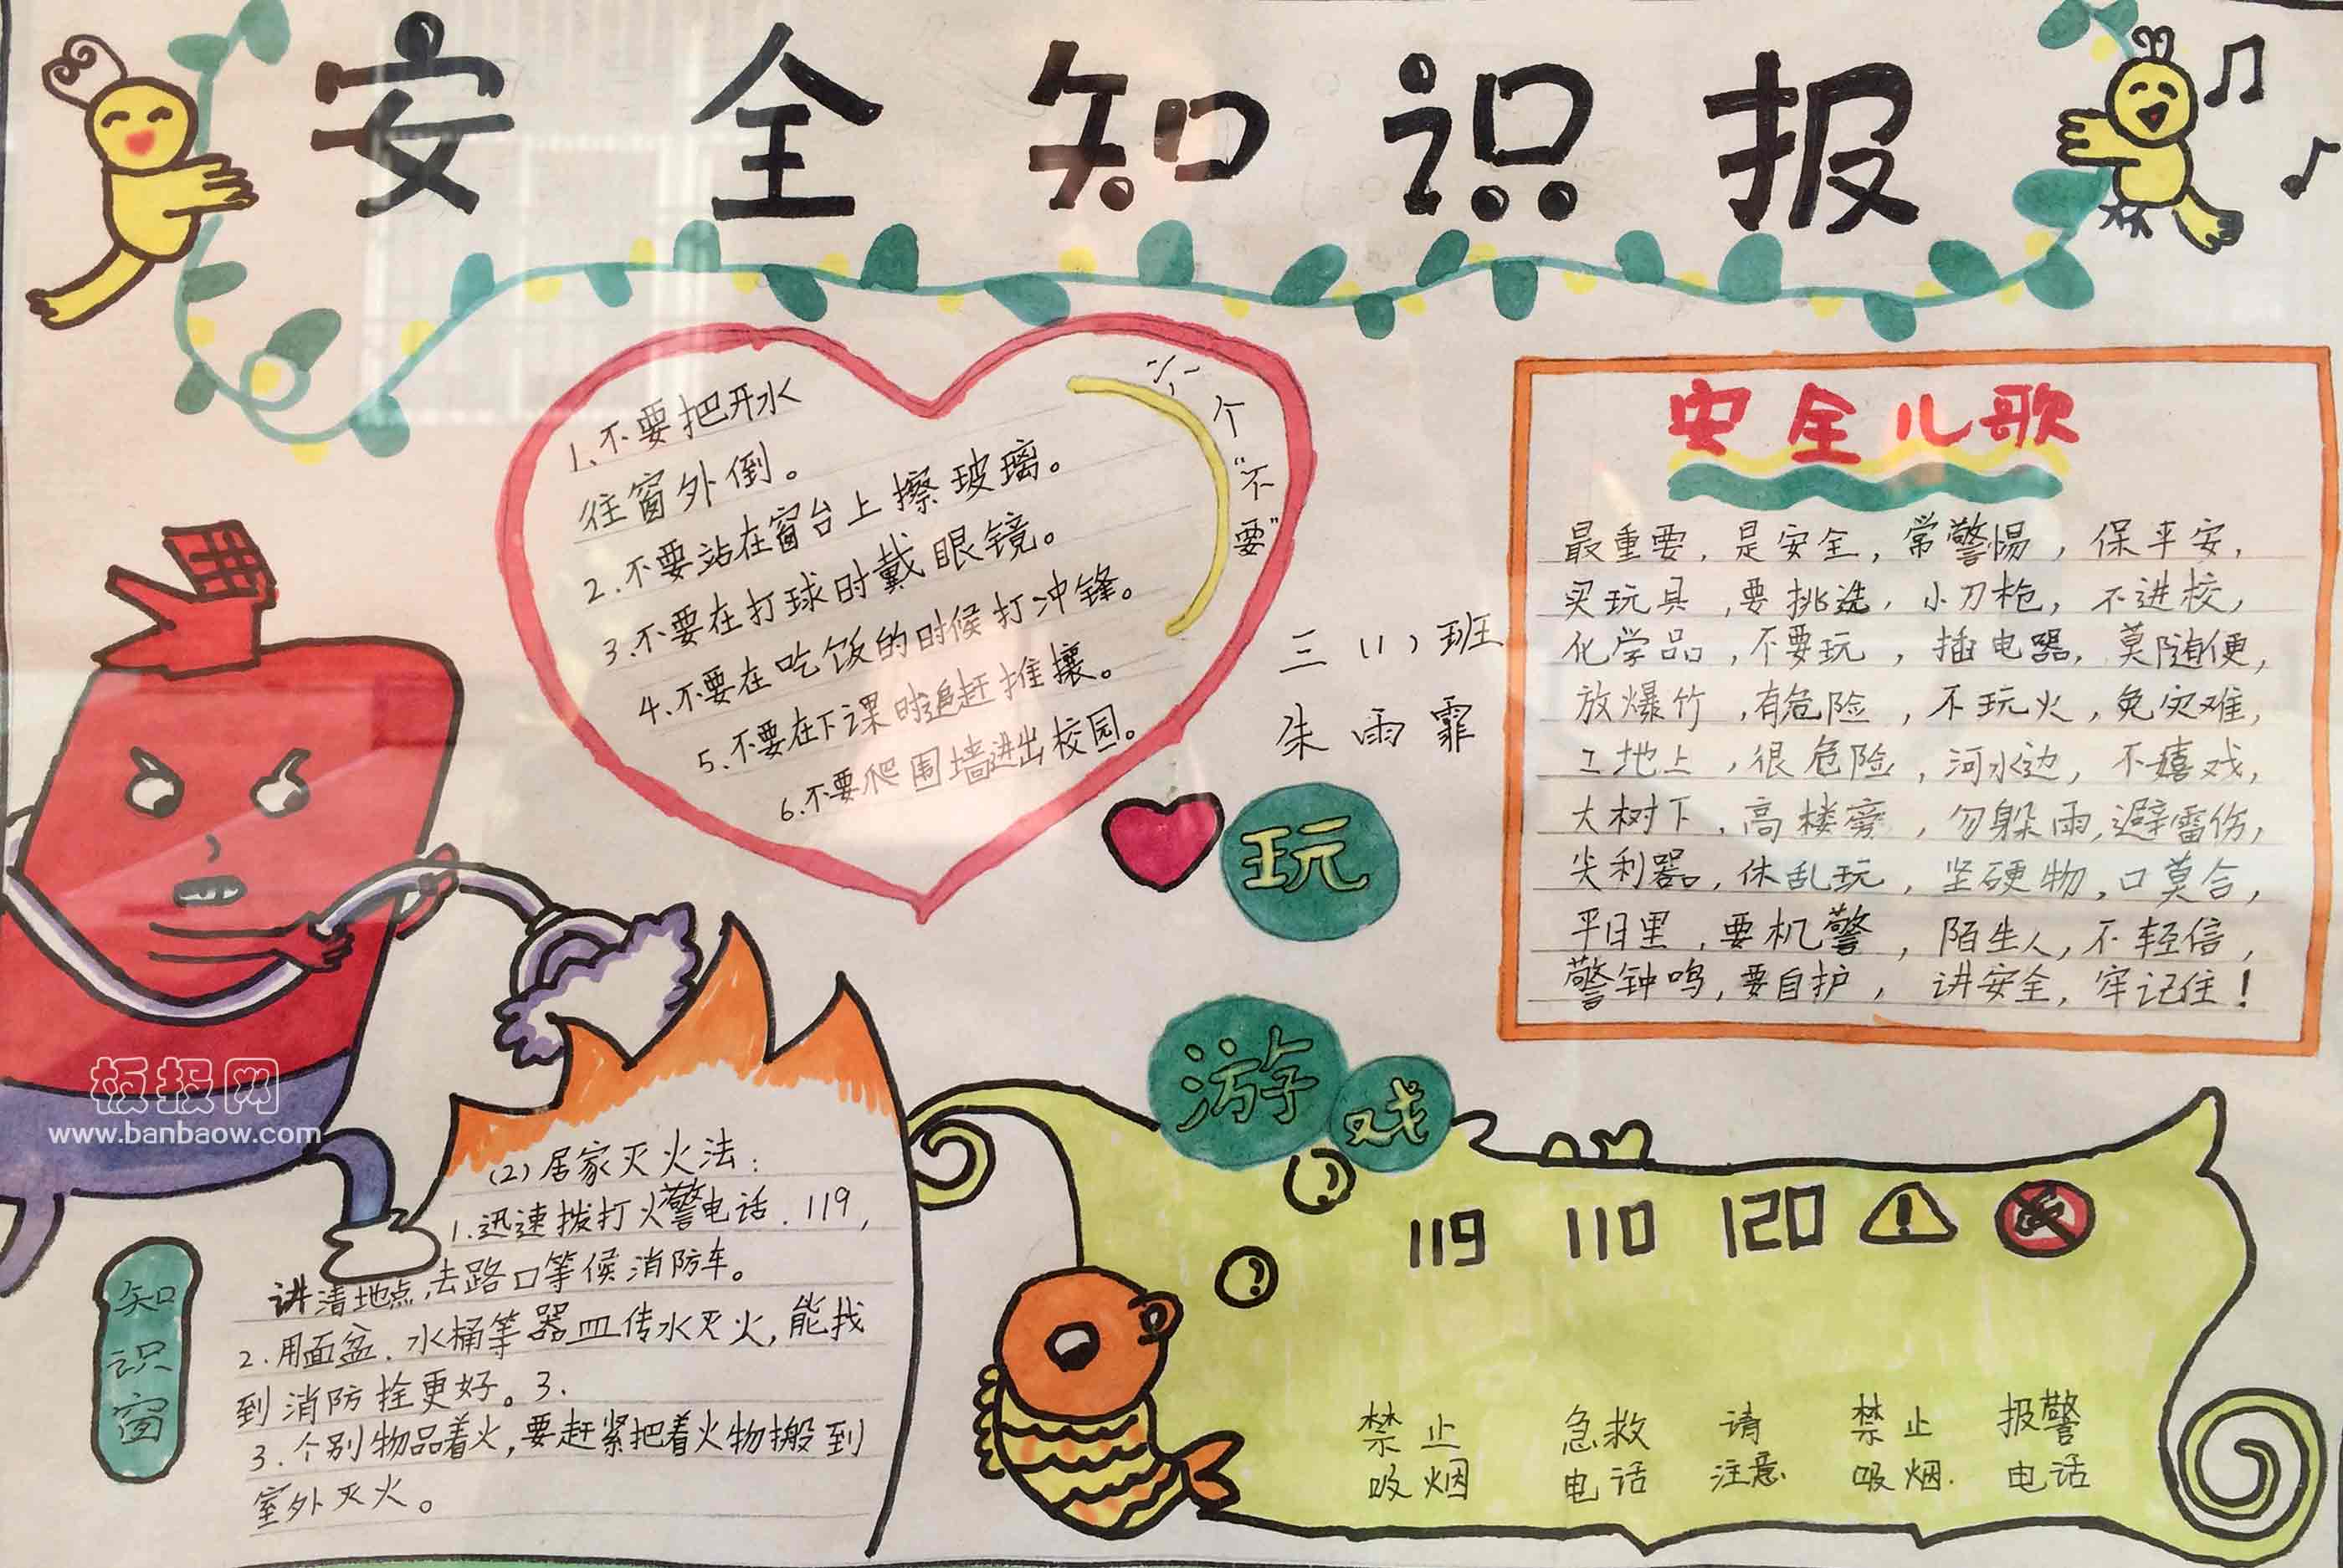 安全知识报
1、不要把开水
往窗外倒。
2.不要站在窗台上擦玻璃。
3.不要在打球时戴眼镜。
4.不要在吃饭的时候打冲锋。
5.不要在下课时追赶推攘。
6.不要爬围墙进出校园。
六个“不要”
三(1)班
朱雨霏
安全儿歌
最重要,是安全,常警惕,保平安,
买玩具,要挑选,小刀枪,不进校,
化学品,不要玩,插电器,莫随便,
放爆竹,有危险,不玩火,免灾难,
工地上,很危险,河水边,不嬉戏,
大树下,高楼旁,勿躲雨,避雷伤,
尖利器,休乱玩,坚硬物,口莫含,
平日里,要机警,陌生人,不轻信,
警钟鸣,要自护,讲安全,牢记住!
玩
游戏
板报网
www.banbaow.com
知识窗
(2)居家灭火法:
1.迅速拨打火警电话.119,
讲清地点,去路口等候消防车。
2.用面盆.水桶等器皿传水灭火,能找
到消防拴更好。3.
3.个别物品着火,要赶紧把着火物搬到
室外灭火。
119 110 120
禁止 急救 请 禁止 报警
吸烟 电话 注意 吸烟. 电话